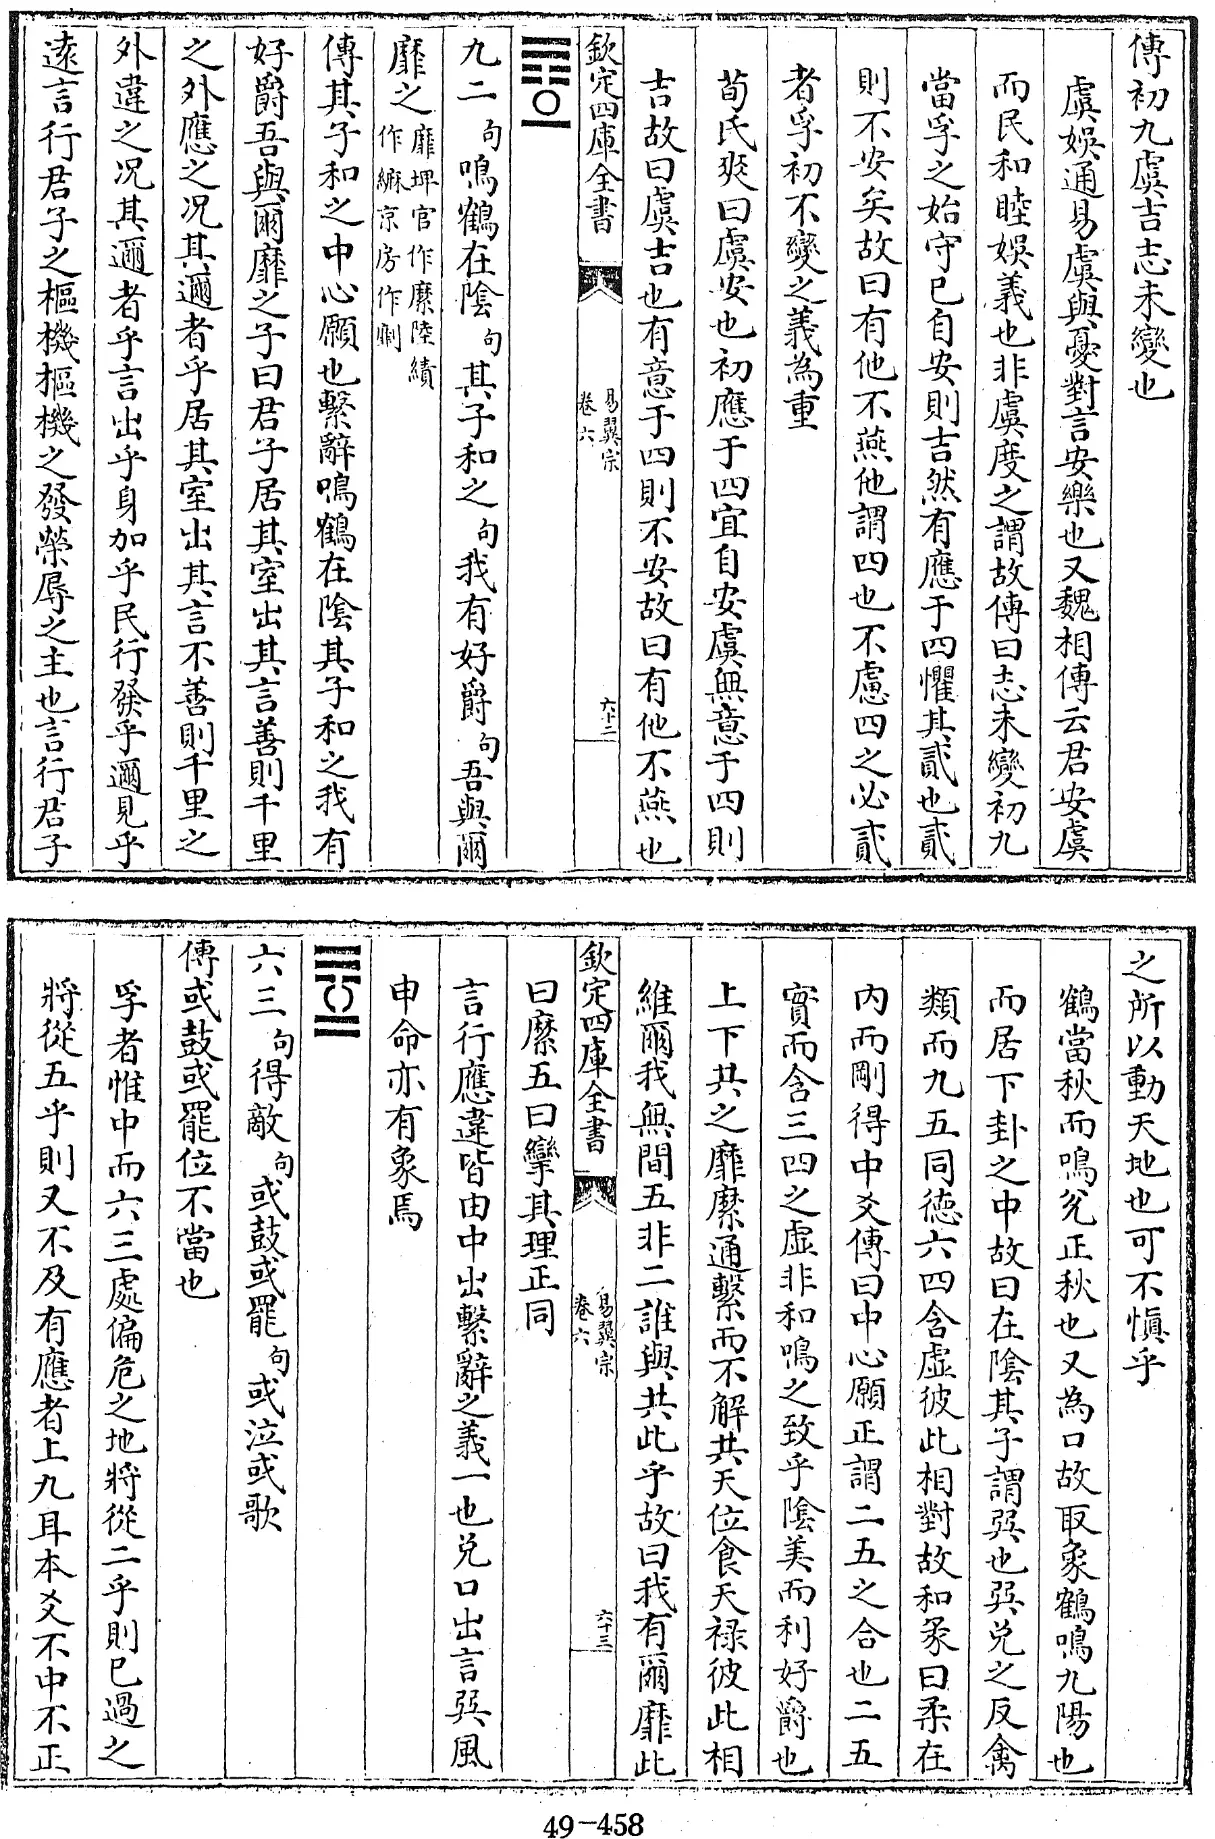 傳初九虞吉志未變也
虞娯通易虞與憂對言安樂也又魏相傳云君安虞
而民和睦娯義也非虞度之謂故傳曰志未變初九
當孚之始守已自安則吉然有應于四懼其貳也貳
則不安矣故曰有他不燕他謂四也不慮四之必貳
者孚初不變之義為重
荀氏爽曰虞安也初應于四宜自安虞無意于四則
吉故曰虞吉也有意于四則不安故曰有他不燕也
欽定四庫全書
易翼宗
卷六
六十二
九二句鳴鶴在陰句其子和之句我有好爵句吾與爾
靡之靡埤官作縻陸績
作縻京房作劘
傳其子和之中心願也繫辭鳴鶴在陰其子和之我有
好爵吾與爾靡之子曰君子居其室出其言善則千里
之外應之况其邇者乎居其室出其言不善則千里之
外違之况其邇者乎言出乎身加乎民行發乎邇見乎
逺言行君子之樞機樞機之發榮辱之主也言行君子
之所以動天地也可不慎乎
鶴當秋而鳴兊正秋也又為口故取象鶴鳴九陽也
而居下卦之中故曰在陰其子謂巽也巽兊之反禽
類而九五同德六四含虛彼此相對故和彖曰柔在
内而剛得中爻傳曰中心願正謂二五之合也二五
實而含三四之虛非和鳴之致乎陰美而利好爵也
上下共之靡縻通繫而不解共天位食天禄彼此相
維爾我無間五非二誰與共此乎故曰我有爾靡此
欽定四庫全書
易翼宗
卷六
六十三
曰縻五曰攣其理正同
言行應違皆由中出繫辭之義一也兊口出言巽風
申命亦有象焉
六三句得敵句或鼓或罷句或泣或歌
傳或鼓或罷位不當也
孚者惟中而六三處偏危之地將從二乎則已過之
將從五乎則又不及有應者上九耳本爻不中不正
49-458